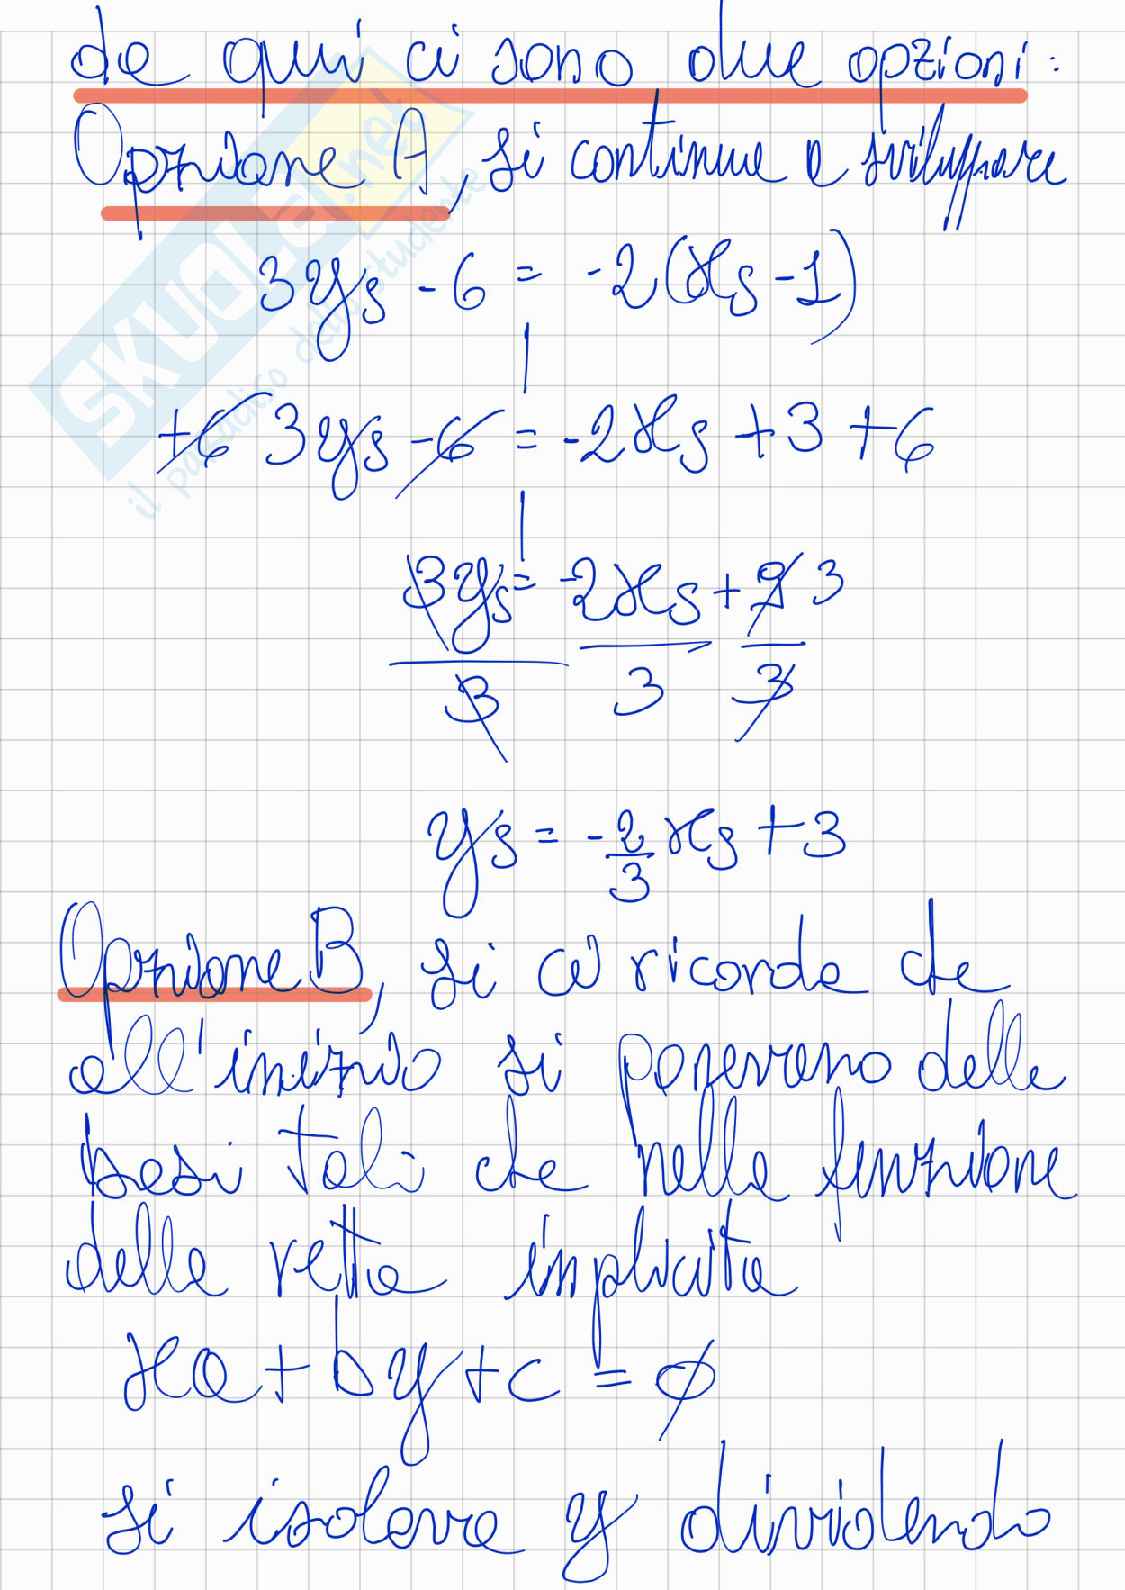 da qui ci sono due opzioni:
Opzione A, si continua a sviluppare
3ys - 6 = -2(xs - 1)
+6 3ys - 6 = -2xs + 3 + 6
3ys = -2xs + 9 3
3 3 3
ys = -2/3 xs + 3
Opzione B, si ci ricorda che
all'inizio si ponevano delle
basi tali che nella funzione
della retta implicita
xa + by + c = 0
si isolava y dividendo
SKUOLA.net
il paradiso dello studente